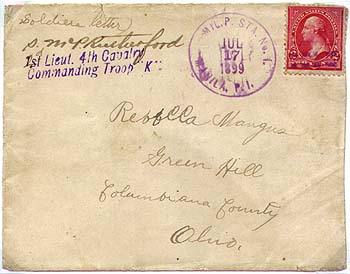 (Soldiers letter)
S. McP Rutherford
1st Lieut. 4th Cavalry
Commanding Troop "K".
MIL. P. STA. No. 1.
JUL
17
1899
MANILA, P.I.
Rebecca Mangus
Green Hill
Columbiana County
Ohio.